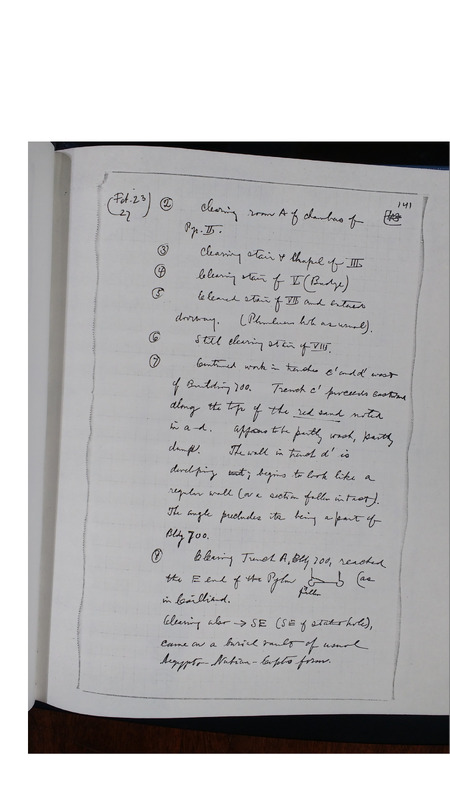 141
(Feb. 23) 27
② Clearing room A of chambers of
Py. II.
③ Clearing stair & Chapel of III
④ Clearing stair of V (Budge)
⑤ Cleared stair of VII and entered
doorway. (Plunderers hole as usual).
⑥ Still clearing stair of VIII.
⑦ Continued work in trenches c' and d' west
of Building 700. Trench c' proceeds eastward
along the top of the red sand noted
in a-d. appears to be partly wash, partly
dump. The wall in trench d' is
developing begins to look like a
regular wall (or a section fallen intact).
The angle precludes its being a part of
Bldg 700.
⑧ Clearing Trench A, Bldg 700, reached
the E end of the Pylon (as
in Cailliaud.
Clearing also → SE (SE of statue hole),
came on a burial vault of usual
Aegypto-Nubian-Coptic form.